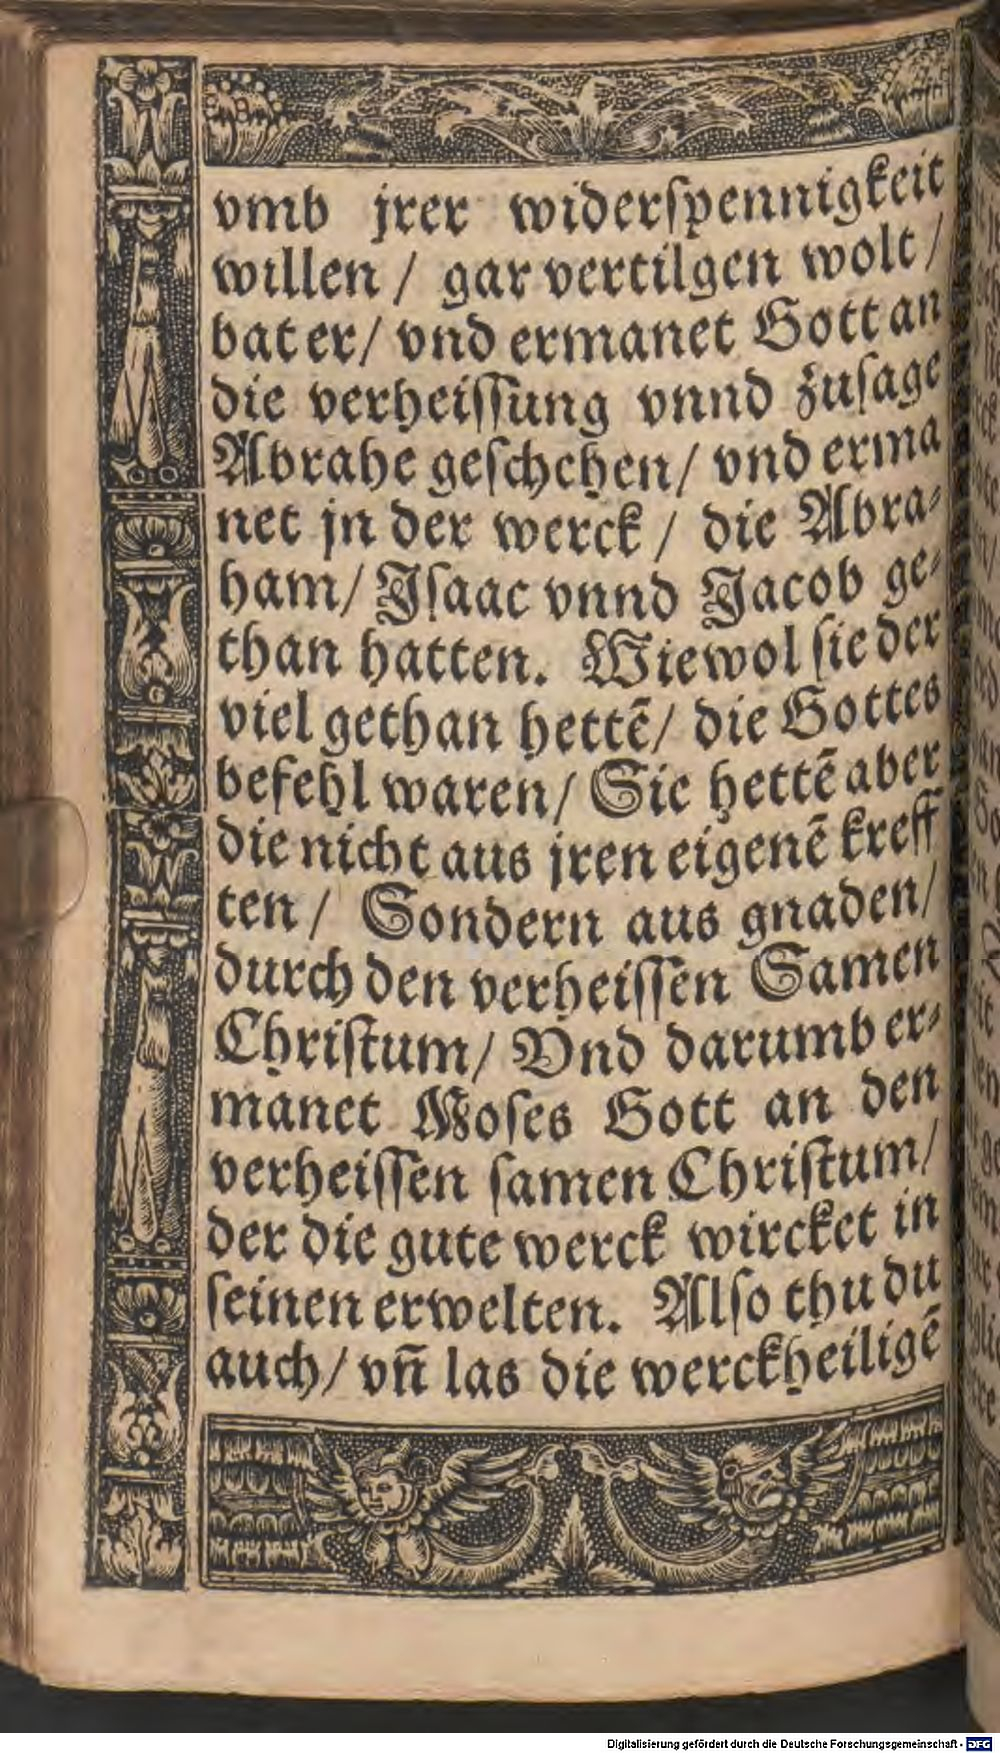 vmb jrer widerſpennigkeit
willen / gar vertilgen wolt /
bat er / vnd ermanet Gott an
die verheiſſung vnnd zuſage
Abrahe geſchehen / vnd erma
net jn der werck / die Abra⸗
ham / Iſaac vnnd Jacob ge⸗
than hatten. Wiewol ſie der
viel gethan hettẽ / die Gottes
befehl waren / Sie hettẽ aber
die nicht aus jren eigenẽ kreff
ten / Sondern aus gnaden /
durch den verheiſſen Samen
Chriſtum / Vnd darumb er⸗
manet Moſes Gott an den
verheiſſen ſamen Chriſtum /
der die gute werck wircket in
ſeinen erwelten. Alſo thu du
auch / vñ las die werckheiligẽ
Digitalisierung gefördert durch die Deutsche Forschungsgemeinschaft - DFG